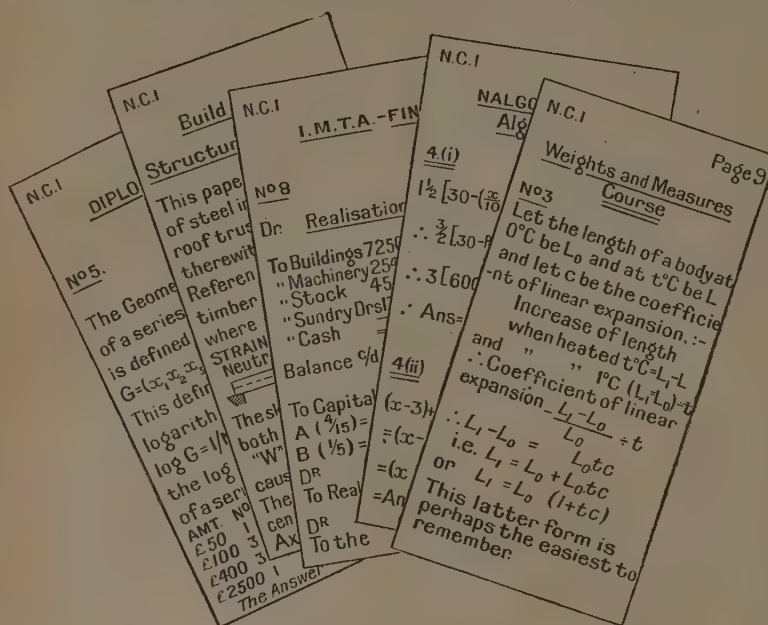 N.C.I
DIPLO
No 5.
The Geome
of a series
is defined
G=(x₁x₂x₃
This defin
logarith
log G=1/N
the log
of a seri
AMT. No
£50 1
£100 3
£400 3
£2500 1
The Answer
N.C.I
Build
Structur
This pape
of steel in
roof trus
therewit
Referen
timber
where
STRAIN
Neutr
The sk
both
"W"
caus
The
cen
Ax
N.C.I
I.M.T.A.-FIN
No 8
Dr. Realisation
To Buildings 7250
" Machinery 254
" Stock 45
" Sundry Drs 17
" Cash =
Balance c/d
To Capital
A (4/15)=
B (1/5)=
DR
To Real
DR
To the
N.C.I
NALGO
Alg
4.(i)
1½ [30-(x/10
∴ 3/2 [30-
∴ 3 [600
∴ Ans=
4(ii)
(x-3)+
=(x-
=(x
=An
N.C.I
Page 9
Weights and Measures
Course
No 3
Let the length of a body at
0°C be L₀ and at t°C be L
and let c be the coefficie
-nt of linear expansion, :-
Increase of length
when heated t°C=L₁-L
and " " 1°C (L₁-L₀)÷t
∴ Coefficient of linear
expansion = L₁-L₀/L₀ ÷t
∴ L₁-L₀ = L₀tc
i.e. L₁ = L₀ + L₀tc
or L₁ = L₀ (1+tc)
This latter form is
perhaps the easiest to
remember.